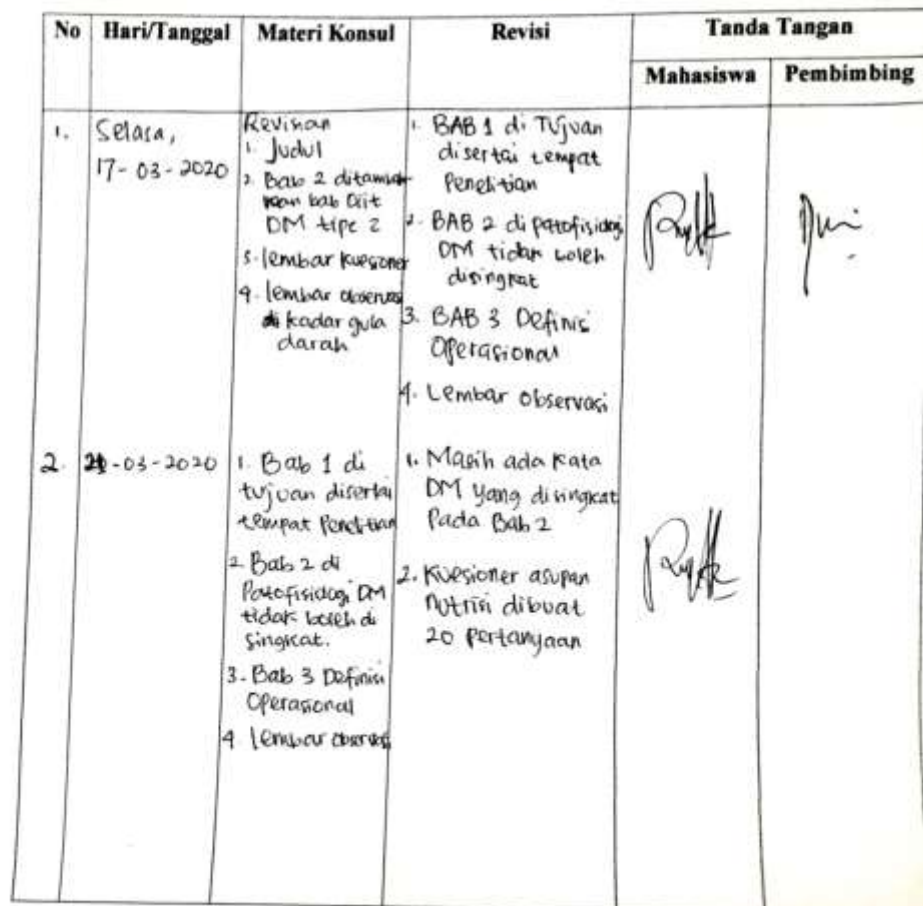 No Hari/Tanggal Materi Konsul Revisi Tanda Tangan
Mahasiswa Pembimbing
1. Selasa,
17-03-2020
Revisian
1. Judul
2. Bab 2 ditambah
kan bab Diit
DM tipe 2
3. lembar kuesioner
4. lembar observasi
di kadar gula
darah
1. BAB 1 di Tujuan
disertai tempat
Penelitian
2. BAB 2 di patofisiologi
DM tidak boleh
disingkat
3. BAB 3 Definisi
Operasional
4. Lembar observasi
2. -03-2020
1. Bab 1 di
tujuan disertai
tempat Penelitian
2. Bab 2 di
Patofisiologi DM
tidak boleh di
singkat.
3. Bab 3 Definisi
Operasional
4. lembar observasi
1. Masih ada kata
DM yang disingkat
Pada Bab 2
2. Kuesioner asupan
Nutrisi dibuat
20 Pertanyaan